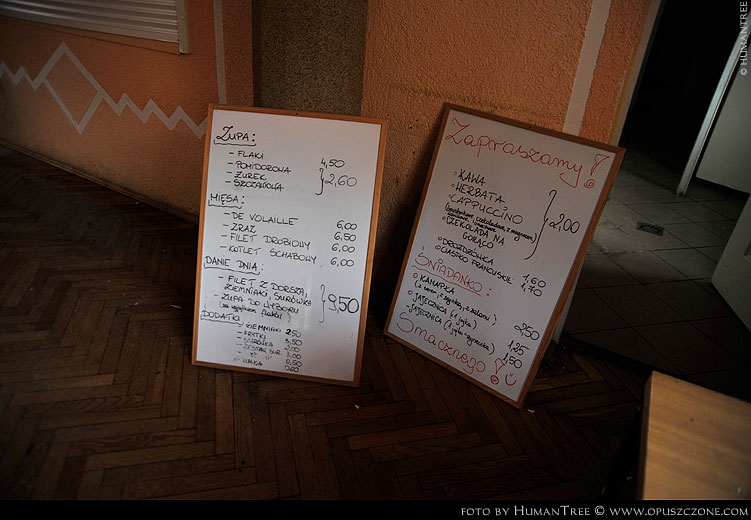 ZUPA:
- FLAKI 4,50
- POMIDOROWA
- ŻUREK } 2,60
- SZCZAWIOWA
MIĘSA:
- DE VOLAILLE 6,00
- ZRAZ 6,50
- FILET DROBIOWY 6,00
- KOTLET SCHABOWY 6,00
DANIE DNIA:
- FILET Z DORSZA,
ZIEMNIAKI, SURÓWKA } 9,50
- ZUPA DO WYBORU
(za wyjątkiem flaków)
DODATKI:
- ZIEMNIAKI 2,50
- FRYTKI 3,50
- SURÓWKA 2,00
- ZESTAW SUR. 3,00
0,50
0,60
Zapraszamy!
KAWA
HERBATA
CAPPUCCINO } 2,00
CZEKOLADA NA
GORĄCO
DROŻDŻÓWKA 1,60
CIASTKO FRANCUSKIE 1,70
ŚNIADANKO:
KANAPKA
(z serem, z szynką, z salami) 2,50
JAJECZNICA (1 jajko) 1,25
JAJECZNICA (1 jajko + szynka) 1,50
Smacznego!
© HUMANTREE
FOTO BY HUMANTREE © WWW.OPUSZCZONE.COM